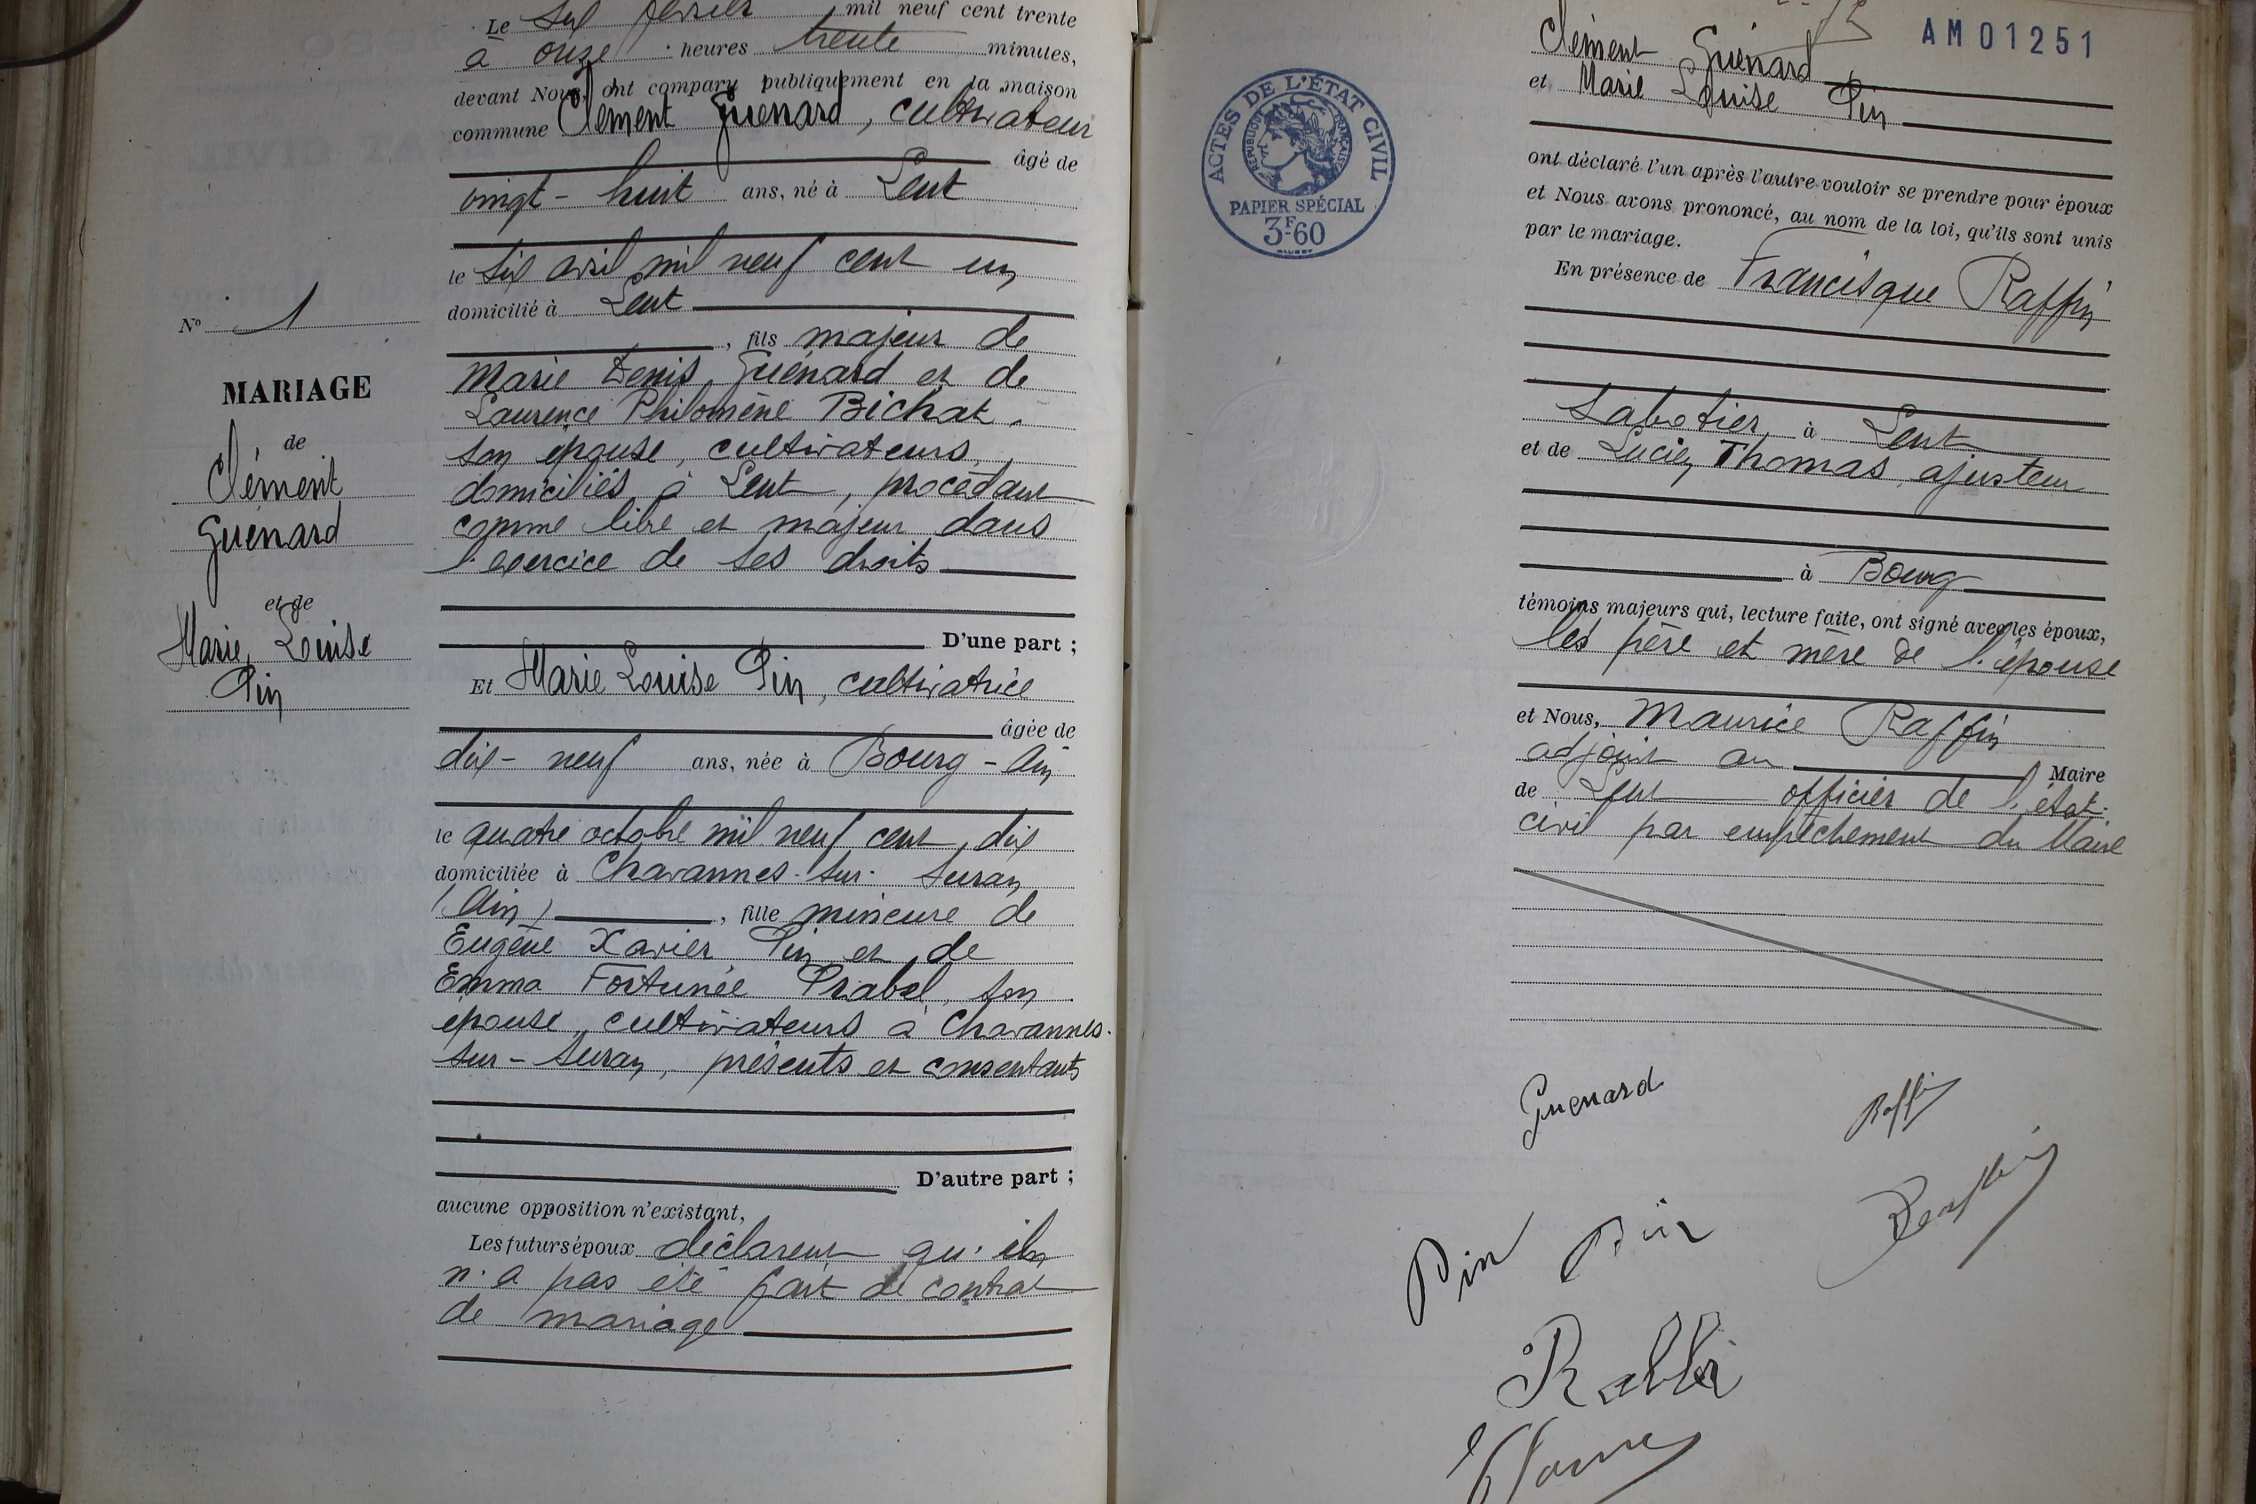 Le six février mil neuf cent trente
à onze heures trente minutes,
devant Nous, ont comparu publiquement en la maison
commune Clément Guénard, cultivateur
âgé de
vingt-huit ans, né à Lent
le six avril mil neuf cent un
domicilié à Lent
, fils majeur de
Marie Denis Guénard et de
Laurence Philomène Bichat,
son épouse, cultivateurs,
domiciliés à Lent, procédant
comme libre et majeur dans
l'exercice de ses droits
D'une part ;
Et Marie Louise Pin, cultivatrice
âgée de
dix-neuf ans, née à Bourg-Ain
le quatre octobre mil neuf cent dix
domiciliée à Chavannes-sur-Suran
(Ain), fille mineure de
Eugène Xavier Pin et de
Emma Fortunée Prabel, son
épouse, cultivateurs à Chavannes-
sur-Suran, présents et consentants
D'autre part ;
aucune opposition n'existant,
Les futurs époux déclarent qu'il
n'a pas été fait de contrat
de mariage
No 1
MARIAGE
de
Clément
Guénard
et de
Marie Louise
Pin
AM01251
Clément Guénard
et Marie Louise Pin
ont déclaré l'un après l'autre vouloir se prendre pour époux
et Nous avons prononcé, au nom de la loi, qu'ils sont unis
par le mariage.
En présence de Francisque Raffin
sabotier à Lent
et de Lucien Thomas, ajusteur
à Bourg
témoins majeurs qui, lecture faite, ont signé avec les époux,
les père et mère de l'épouse
et Nous, Maurice Raffin
adjoint au Maire
de Lent officier de l'état-
civil par empêchement du Maire
ACTES DE L'ÉTAT CIVIL
RÉPUBLIQUE FRANÇAISE
PAPIER SPÉCIAL
3F60
Guenard
Raffin
Pin
Pin